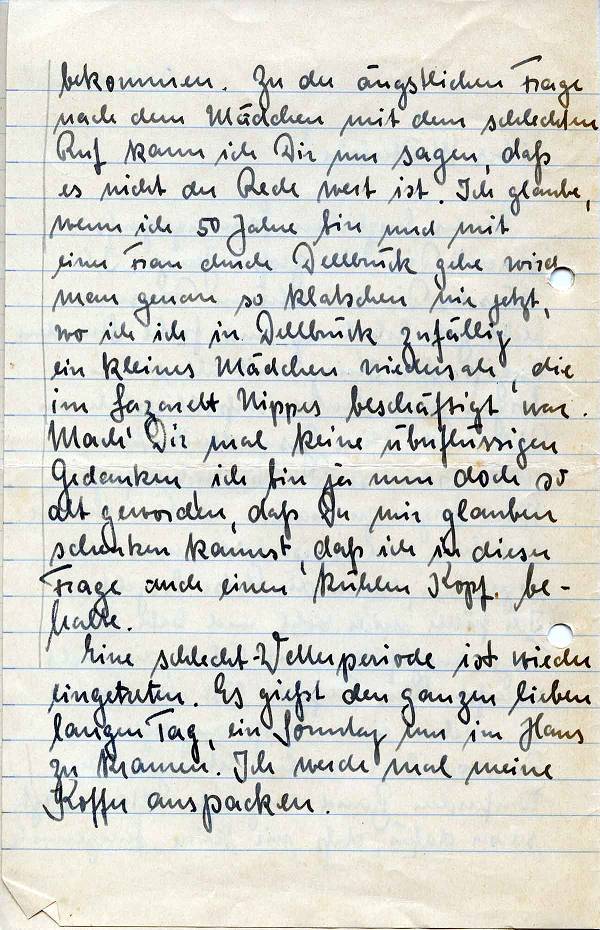 bekommen. Zu der ängstlichen Frage
nach dem Mädchen mit dem schlechten
Ruf kann ich Dir nur sagen, daß
es nicht der Rede wert ist. Ich glaube,
wenn ich 50 Jahre bin und mit
einer Frau durch Dellbrück gehe wird
man genau so klatschen wie jetzt,
wo ich ich in Dellbrück zufällig
ein kleines Mädchen wiedersah, die
im Lazarett Nippes beschäftigt war.
Mach' Dir mal keine überflüssigen
Gedanken, ich bin ja nun doch so
alt geworden, daß Du mir glauben
schenken kannst, daß ich in dieser
Frage auch einen kühlen Kopf be-
halte.
Eine schlecht-Wetterperiode ist wieder
eingetreten. Es gießt den ganzen lieben
langen Tag, ein Sonntag um im Haus
zu kramen. Ich werde mal meine
Koffer auspacken.